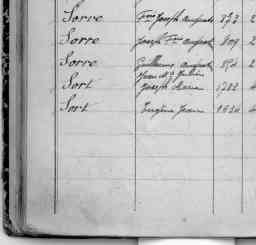 Sorre Fois Joseph August 873 2
Sorre Joseph Fois August 809 2
Sorre Guillaume August 874 2
Jean Julien
Sort Joseph Marie 1782 4
Sort Eugène Jean 1834 4